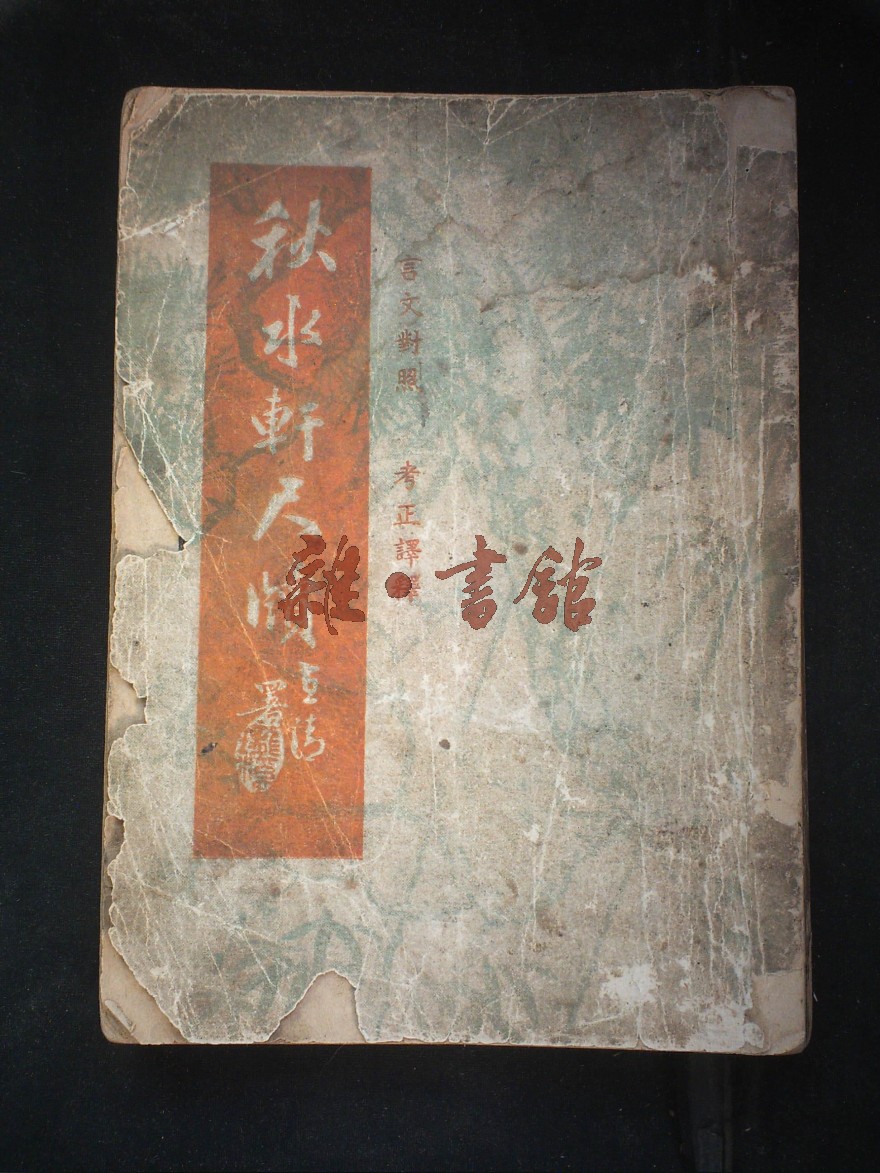 言文對照 考正譯釋
秋水軒尺牘
署
雜·書館